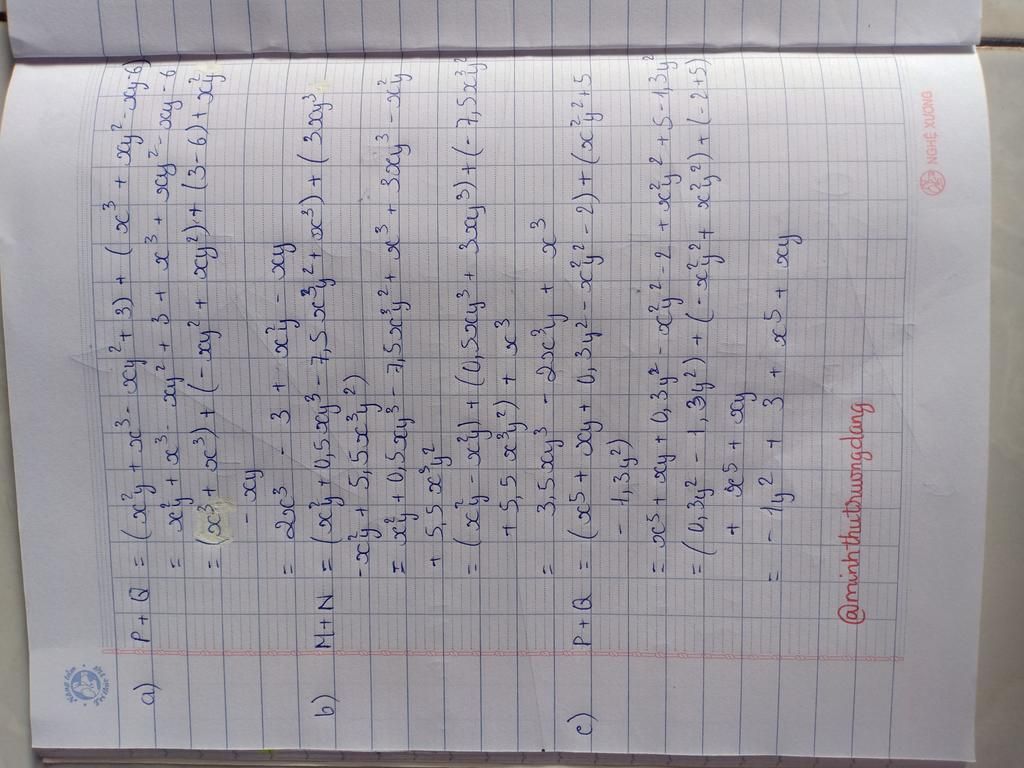 a) P + Q = (x²y + x³ - xy² + 3) + (x³ + xy² - xy - 6)
= x²y + x³ - xy² + 3 + x³ + xy² - xy - 6
= (x³ + x³) + (-xy² + xy²) + (3 - 6) + x²y
- xy
= 2x³ - 3 + x²y - xy
b) M + N = (x²y + 0,5xy³ - 7,5x³y² + x³) + (3xy³
- x²y + 5,5x³y²)
= x²y + 0,5xy³ - 7,5x³y² + x³ + 3xy³ - x²y
+ 5,5x³y²
= (x²y - x²y) + (0,5xy³ + 3xy³) + (-7,5x³y²
+ 5,5x³y²) + x³
= 3,5xy³ - 2x³y + x³
c) P + Q = (x⁵ + xy + 0,3y² - x²y² - 2) + (x²y² + 5
- 1,3y²)
= x⁵ + xy + 0,3y² - x²y² - 2 + x²y² + 5 - 1,3y²
= (0,3y² - 1,3y²) + (-x²y² + x²y²) + (-2 + 5)
+ x⁵ + xy
= -1y² + 3 + x⁵ + xy
@minhthutruongdang
NGHỆ XƯƠNG